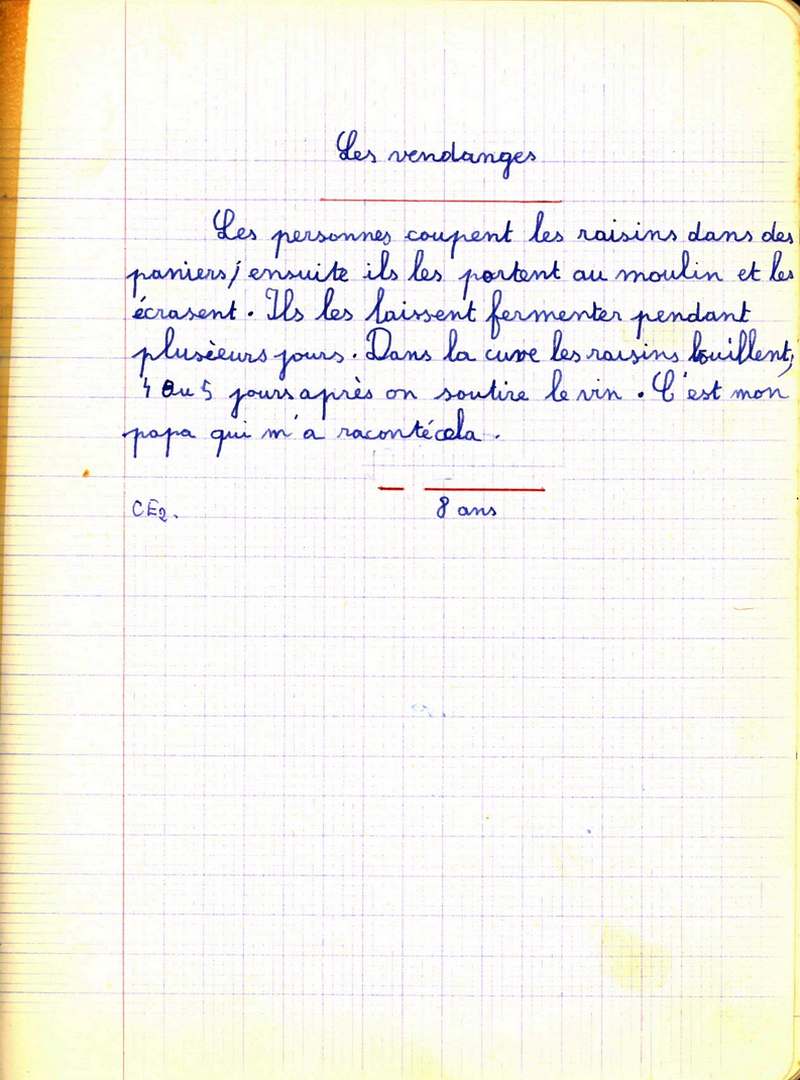 Les vendanges
Les personnes coupent les raisins dans des
paniers, ensuite ils les portent au moulin et les
écrasent. Ils les laissent fermenter pendant
plusieurs jours. Dans la cuve les raisins bouillent,
4 ou 5 jours après on soutire le vin. C'est mon
papa qui m'a raconté cela.
CE2.
8 ans